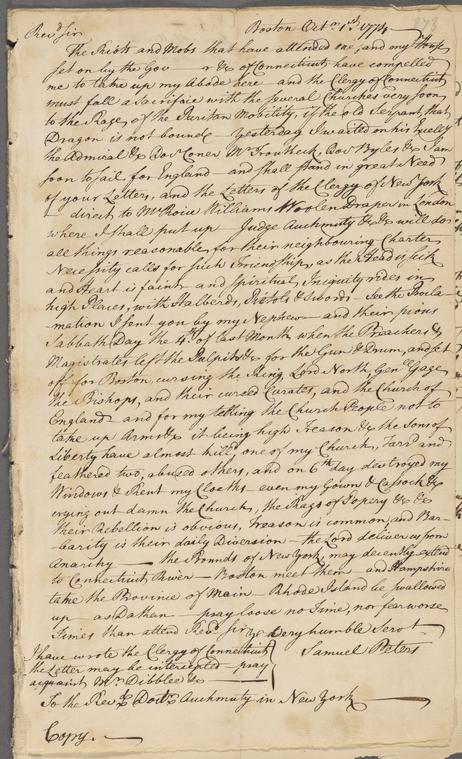 Rev.d Sir Boston Octo. 1st. 1774 — 273
The Riots and Mobs that have attended me, and my House
set on by the Gov r &c of Connecticut have compelled
me to take up my Abode here — and the Clergy of Connecticut
must fall a Sacrifice with the several Churches very soon
to the Rage of the Puritan Mobility, if the old Serpent, that
Dragon is not bound — Yesterday I waited on his Excelly
the Admiral &c Doc.r Coner Mr. Troutbeck Doc.r Byles &c I am
soon to sail for England — and shall stand in great Need
of your Letters, and the Letters of the Clergy of New York
— direct to Mr. Williams Woolen-draper in London
where I shall put up — Judge Auchmuty &c &c will do
all things reasonable for their neighbouring Charter
Necessity calls for such Friendship, as the Head is sick
and Heart is faint — and spiritual Iniquity rides in
high Places, with Halberds, Pistols & Swords — See the Procla-
mation I sent you by my Nephew — and their pious
Sabbath Day the 4th. of last Month when the Preachers &
Magistrates left the Pulpits &c for the Gun & Drum, and set
off for Boston, cursing the King, Lord North, Genl. Gage
the Bishops, and their cursed Curates, and the Church of
England — and for my telling the Church People not to
take up Arms &c it being high Treason &c the Sons of
Liberty have almost kill'd one of my Church, Tarr'd and
feathered two, abused others, and on 6th. day destroyed my
Windows & Rent my Cloaths — even my Gown & Cassock &c
crying out damn the Church, the Rags of Popery &c &c
their Rebellion is obvious, treason is common, and Bar-
barity is their daily Diversion — the Lord deliver us from
Anarchy — the Bounds of New York may decently extend
to Connecticut River — Boston meet them — and Hampshire
take the Province of Main — Rhode Island be swallowed
up as Dathan — pray loose no Time, nor fear worse
Times than attend Rev.d Sir yr very humble Servt.
Samuel Peters
I have wrote the Clergy of Connecticut
the Letter may be intercepted — pray
acquaint Mr. Dibblee &c —
To the Rev.d Doct.r Auchmuty in New York
Copy. —